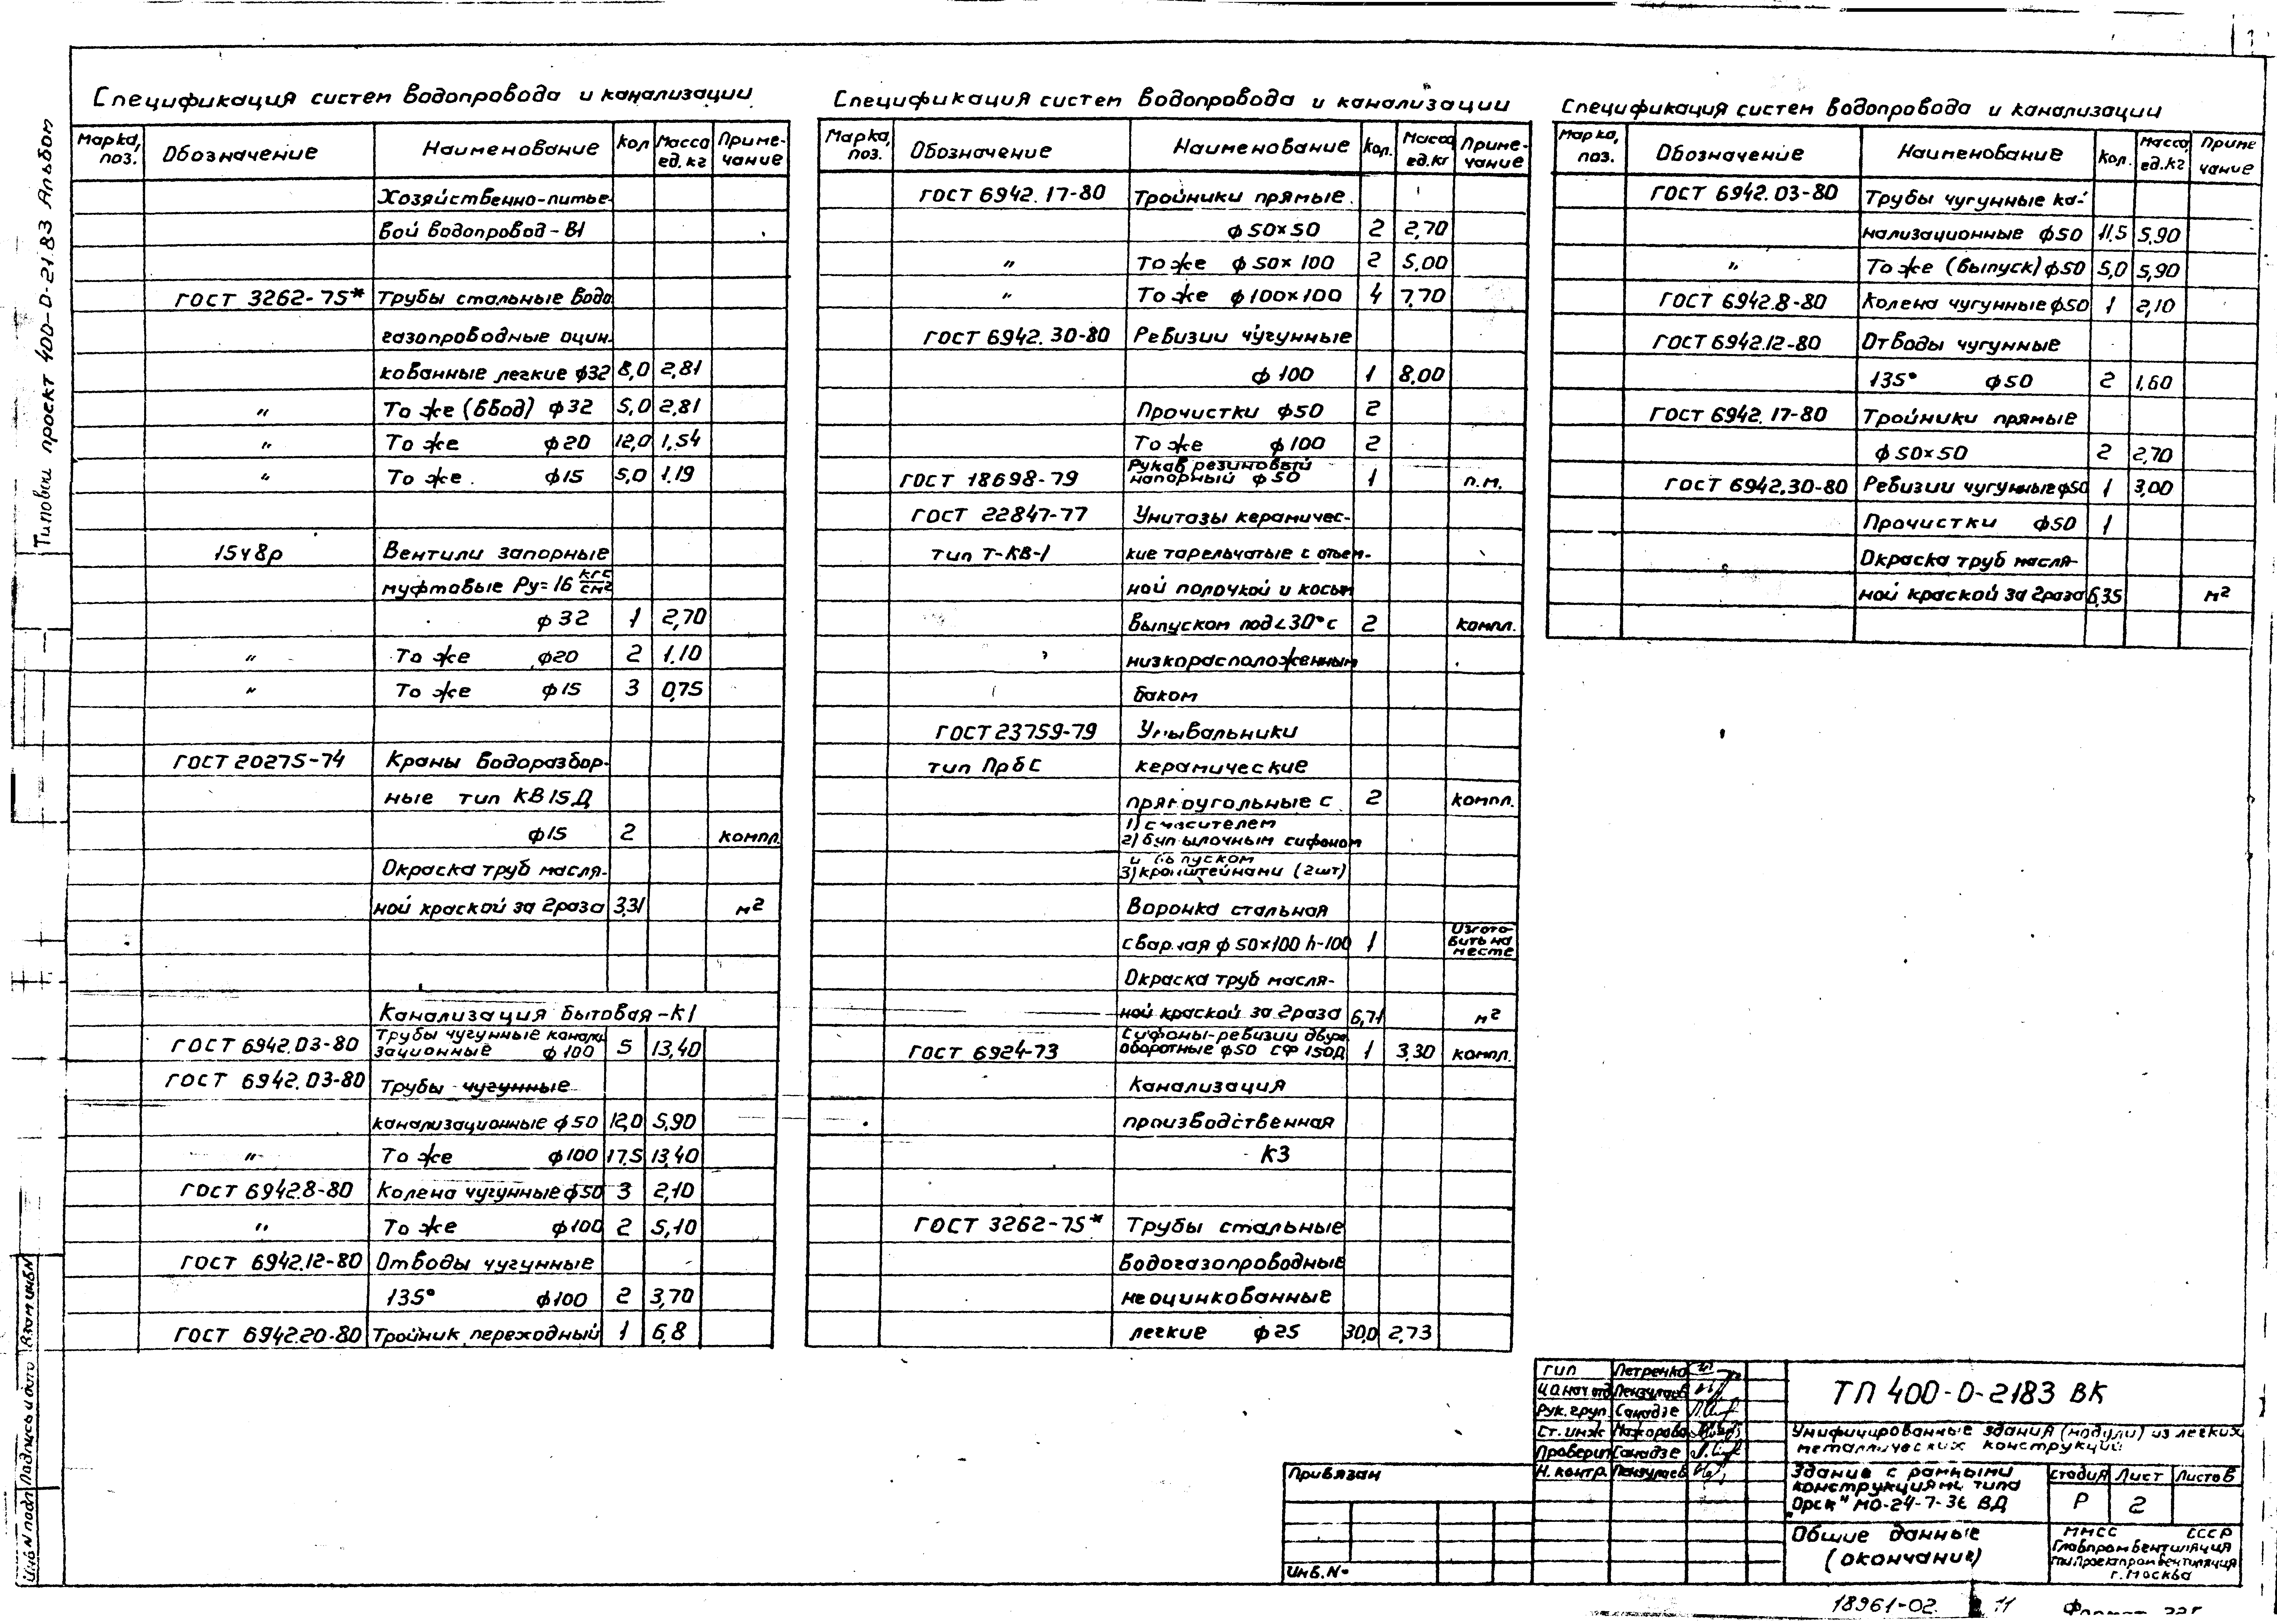 Типовой проект 400-0-21.83 Альбом
Спецификация систем водопровода и канализации
Марка, поз. Обозначение Наименование Кол Масса ед. кг Приме-чание
Хозяйственно-питье-
вой водопровод - В1
ГОСТ 3262-75* Трубы стальные водо
газопроводные оцин-
кованные легкие ф32 8,0 2,81
" То же (ввод) ф32 5,0 2,81
" То же ф20 12,0 1,54
" То же ф15 5,0 1,19
15ч8р Вентили запорные
муфтовые Ру=16 кгс/см²
ф32 1 2,70
" То же ф20 2 1,10
" То же ф15 3 0,75
ГОСТ 20275-74 Краны водоразбор-
ные тип КВ15Д
ф15 2 компл.
Окраска труб масля-
ной краской за 2раза 3,31 м²
Канализация бытовая - К1
ГОСТ 6942.03-80 Трубы чугунные канали
зационные ф100 5 13,40
ГОСТ 6942.03-80 Трубы чугунные
канализационные ф50 12,0 5,90
" То же ф100 17,5 13,40
ГОСТ 6942.8-80 Колена чугунные ф50 3 2,10
" То же ф100 2 5,10
ГОСТ 6942.12-80 Отводы чугунные
135° ф100 2 3,70
ГОСТ 6942.20-80 Тройник переходный 1 6,8
Спецификация систем водопровода и канализации
Марка, поз. Обозначение Наименование Кол. Масса ед. кг Приме-чание
ГОСТ 6942.17-80 Тройники прямые
ф50×50 2 2,70
" То же ф50×100 2 5,00
" То же ф100×100 4 7,70
ГОСТ 6942.30-80 Ревизии чугунные
ф100 1 8,00
Прочистки ф50 2
То же ф100 2
ГОСТ 18698-79 Рукав резиновый
напорный ф50 1 п.м.
ГОСТ 22847-77 Унитазы керамичес-
тип Т-КВ-1 кие тарельчатые с отъем-
ной полочкой и косым
выпуском под∠30° с 2 компл.
низкорасположенным
баком
ГОСТ 23759-79 Умывальники
тип ПрбС керамические
прямоугольные с 2 компл.
1) смесителем
2) бутылочным сифоном
и выпуском
3) кронштейнами (2шт)
Воронка стальная
сварная ф50×100 h-100 1 Изгото-вить на месте
Окраска труб масля-
ной краской за 2раза 6,71 м²
ГОСТ 6924-73 Сифоны-ревизии двух
оборотные ф50 СФ 150Д 1 3,30 компл.
Канализация
производственная
К3
ГОСТ 3262-75* Трубы стальные
водогазопроводные
неоцинкованные
легкие ф25 30,0 2,73
Спецификация систем водопровода и канализации
Марка, поз. Обозначение Наименование Кол. Масса ед.кг Приме чание
ГОСТ 6942.03-80 Трубы чугунные ка-
нализационные ф50 11,5 5,90
" То же (выпуск) ф50 5,0 5,90
ГОСТ 6942.8-80 Колена чугунные ф50 1 2,10
ГОСТ 6942.12-80 Отводы чугунные
135° ф50 2 1,60
ГОСТ 6942.17-80 Тройники прямые
ф50×50 2 2,70
ГОСТ 6942.30-80 Ревизии чугунные ф50 1 3,00
Прочистки ф50 1
Окраска труб масля-
ной краской за 2раза 6,35 м²
ГИП Петренко
И.О.нач.отд Пензулаев
Рук. груп Санадзе
Ст. инж
Проверил Санадзе
Н. контр. Пензулаев
ТП 400-0-2183 ВК
Унифицированные здания (модули) из легких
металлических конструкций
Здание с рамными
конструкциями типа
"Орск" ВД
Стадия Лист Листов
Р 2
Общие данные
(окончание)
ММСС СССР
Главпромвентиляция
Гипроектпромвентиляция
г. Москва
Привязан
Инв. №
Инв N подл Подпись и дата Взам инв N
18961-02 11
Формат 22Г